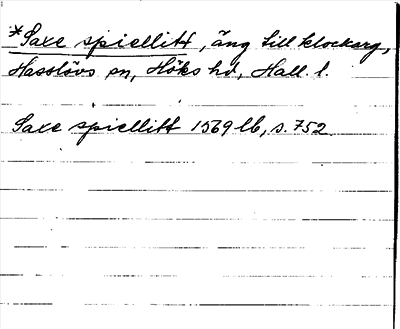 *Saxe spiellitt, äng till klockarg,
Hasslövs sn, Höks hd, Hall. l.
Saxe spiellitt 1569 lb, s. 752